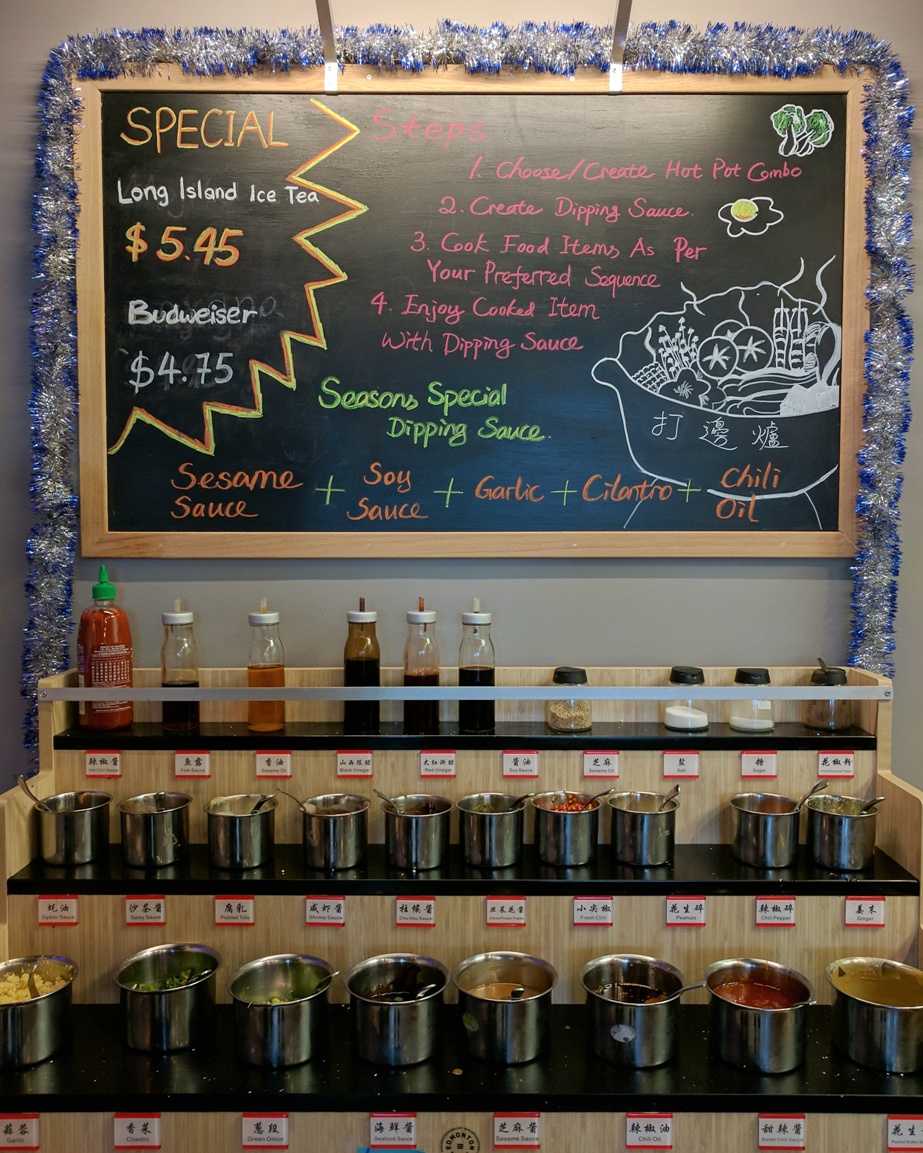 SPECIAL
Long Island Ice Tea
$5.45
Budweiser
$4.75
Steps
1. Choose/Create Hot Pot Combo
2. Create Dipping Sauce.
3. Cook Food Items As Per
Your Preferred Sequence
4. Enjoy Cooked Item
With Dipping Sauce
打邊爐
Seasons Special
Dipping Sauce.
Sesame Sauce + Soy Sauce + Garlic + Cilantro + Chili Oil
辣椒酱
Hot Chili Sauce
鱼露
Fish Sauce
香油
Sesame Oil
山西陈醋
Black Vinegar
大红浙醋
Red Vinegar
酱油
Soy Sauce
芝麻
Sesame Oil
盐
Salt
糖
Sugar
花椒粉
蚝油
Oyster Sauce
沙茶酱
Satay Sauce
腐乳
Pickled Tofu
咸虾酱
Shrimp Sauce
柱候酱
Chu Hou Sauce
韭菜花酱
小尖椒
Fresh Chili
花生碎
Peanuts
辣椒碎
Chili Pepper
姜末
Ginger
蒜蓉
Garlic
香菜
Cilantro
葱段
Green Onion
海鲜酱
Seafood Sauce
EDMONTON
芝麻酱
Sesame Sauce
辣椒油
Chili Oil
甜辣酱
Sweet Chili Sauce
花生